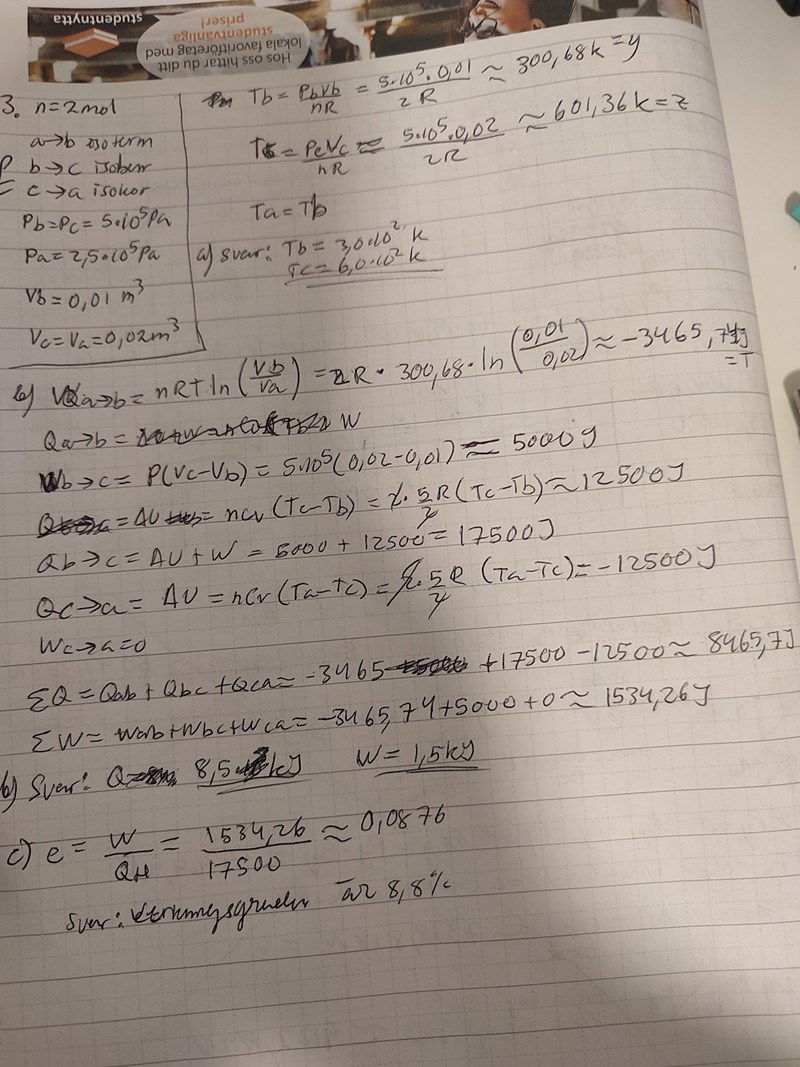 Hos oss hittar du ditt
lokala favoritföretag med
studentvänliga
priser!
studentnytta
3. n=2mol
a→b isoterm
b→c isobar
c→a isokor
Pb=Pc= 5·10⁵Pa
Pa=2,5·10⁵Pa
Vb=0,01 m³
Vc=Va=0,02m³
Tb = PbVb/nR = 5·10⁵·0,01/2R ≈ 300,68k=y
Tc = PcVc/nR = 5·10⁵·0,02/2R ≈ 601,36k=z
Ta=Tb
a) svar: Tb = 3,0·10² k
Tc = 6,0·10² k
b) Wa→b = nRT ln(Vb/Va) = 2R · 300,68 · ln(0,01/0,02) ≈ -3465,74J
=T
Qa→b = W
Wb→c = P(Vc-Vb) = 5·10⁵(0,02-0,01) = 5000J
= ΔU = ncv (Tc-Tb) = 2·5/2R (Tc-Tb) ≈ 12500J
Qb→c = ΔU + W = 5000 + 12500 = 17500J
Qc→a = ΔU = ncv (Ta-Tc) = 2·5/2 R (Ta-Tc) = -12500J
Wc→a=0
ΣQ = Qab + Qbc + Qca = -3465 +17500 -12500 ≈ 8465,7J
ΣW = Wab+Wbc+Wca = -3465,74+5000+0 ≈ 1534,26J
b) Svar: Q 8,5 kJ W = 1,5kJ
c) e = W/QH = 1534,26/17500 ≈ 0,0876
Svar: Verkningsgraden är 8,8%